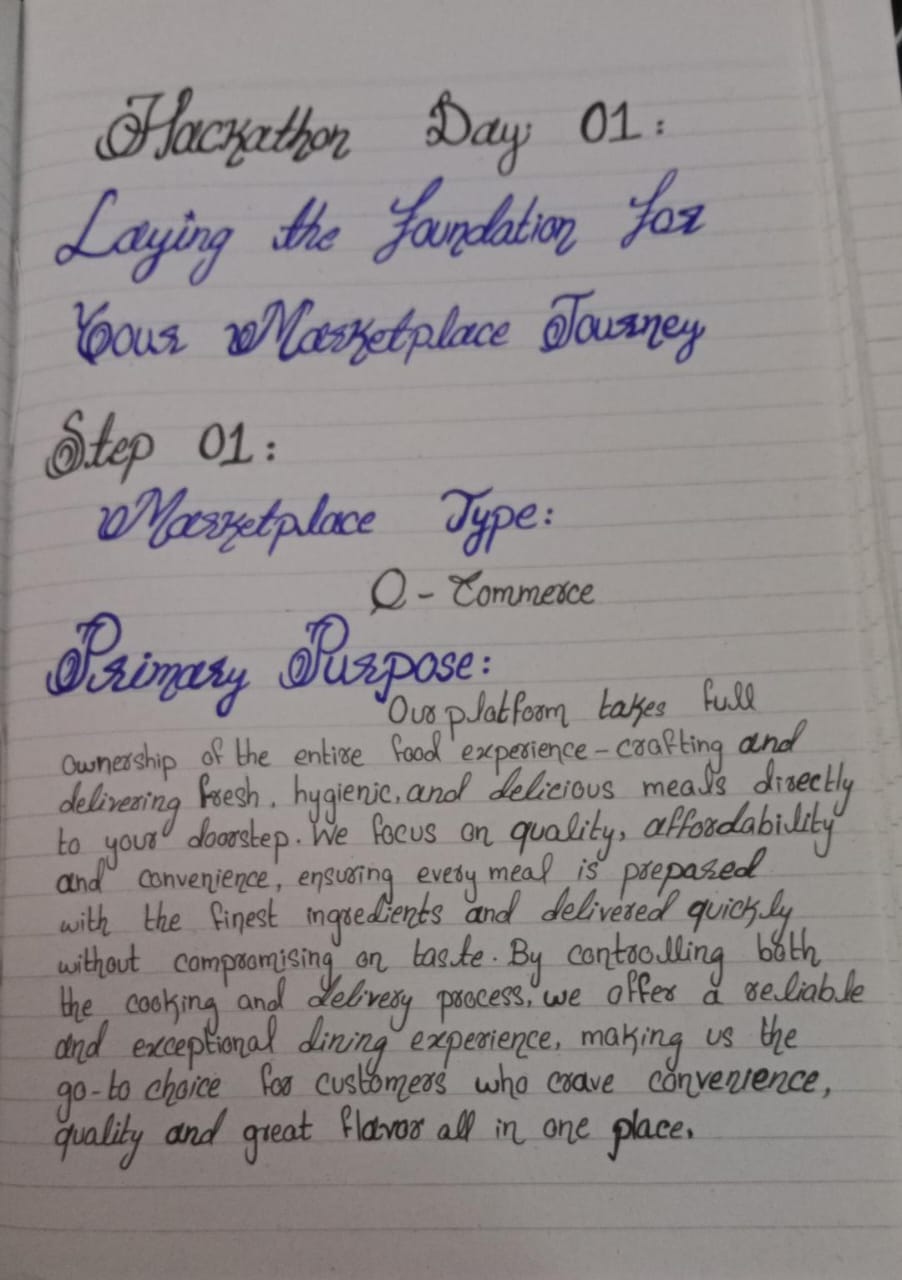 Hackathon Day 01:
Laying the Foundation For
Your Marketplace Journey
Step 01:
Marketplace Type:
Q - Commerce
Primary Purpose:
Our platform takes full
ownership of the entire food experience - crafting and
delivering fresh, hygienic, and delicious meals directly
to your doorstep. We focus on quality, affordability
and convenience, ensuring every meal is prepared
with the finest ingredients and delivered quickly
without compromising on taste. By controlling both
the cooking and delivery process, we offer a reliable
and exceptional dining experience, making us the
go-to choice for customers who crave convenience,
quality and great flavor all in one place.